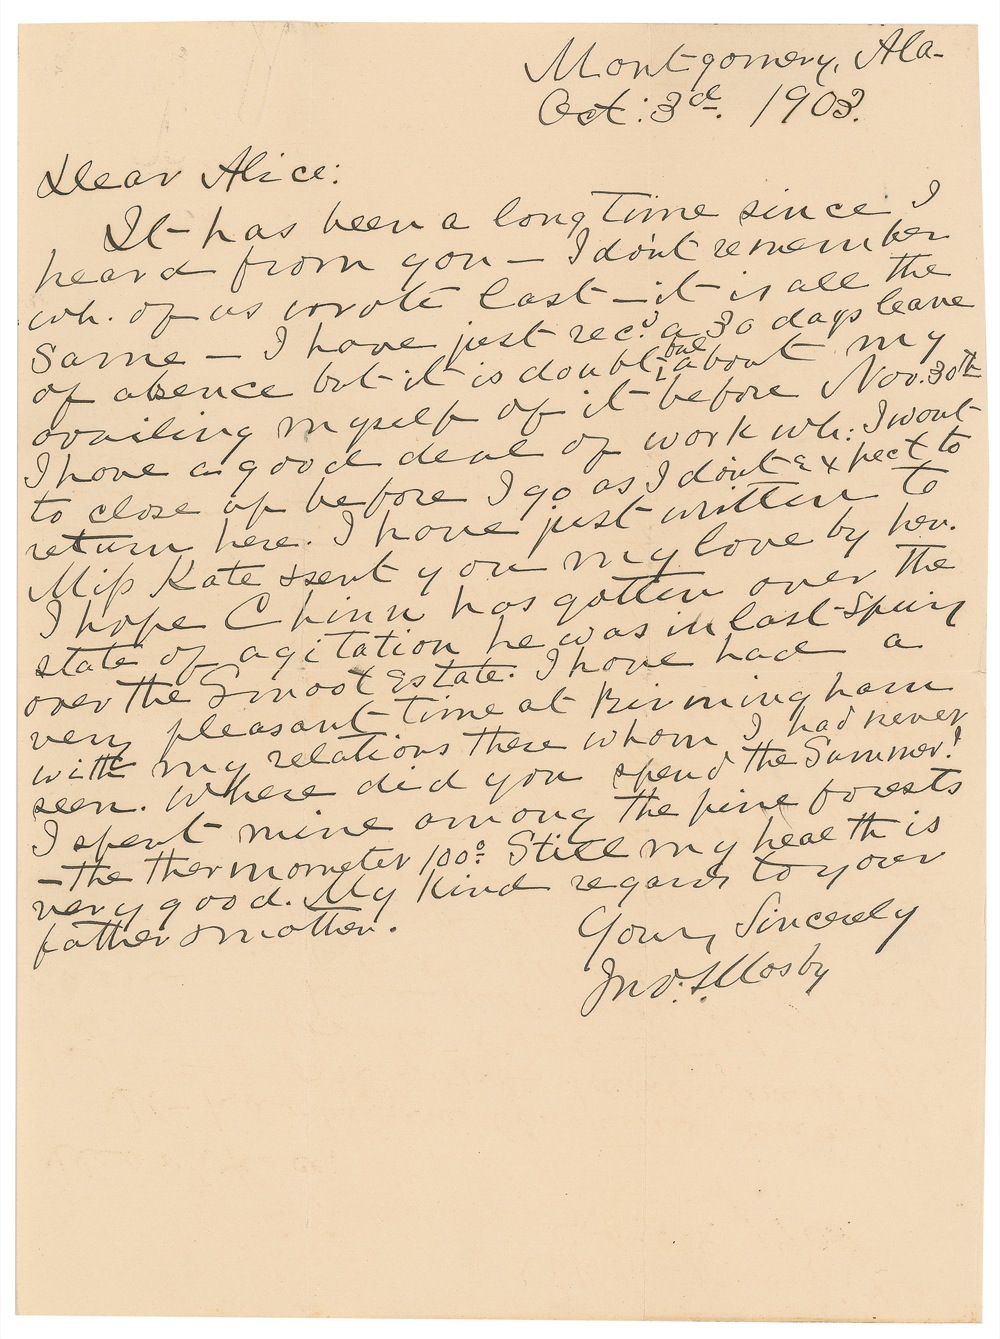 Montgomery, Ala-
Oct: 3d. 1903.
Dear Alice:
It has been a long time since I
heard from you — I don't remember
wh. of us wrote last — it is all the
same — I have just rec'd a 30 days leave
of absence but it is doubtful about my
availing myself of it before Nov. 30th
I have a good deal of work wh: I want
to close up before I go as I don't expect to
return here. I have just written to
Miss Kate & sent you my love by her.
I hope Chinn has gotten over the
state of agitation he was in last Spring
over the Smoot Estate. I have had a
very pleasant time at Birmingham
with my relations there whom I had never
seen. Where did you spend the Summer?
I spent mine among the pine forests
— the thermometer 100°. Still my health is
very good. My kind regards to your
father & mother.
Yours Sincerely
Jno. S. Mosby